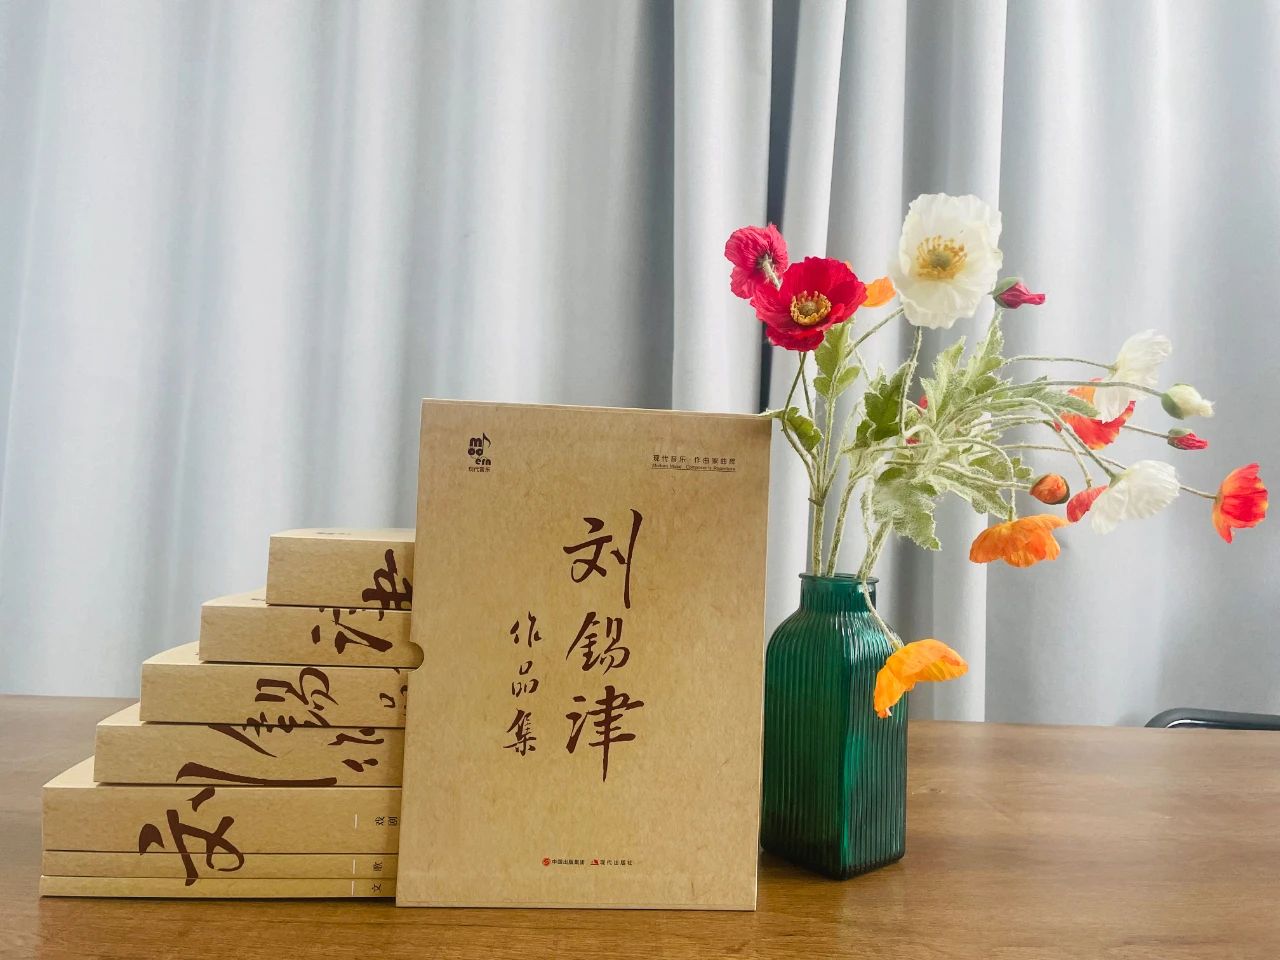 modern
现代音乐
现代音乐·作曲家曲库
刘锡津
作品集
中国出版集团 现代出版社
刘锡津
作品
戏剧
歌
文